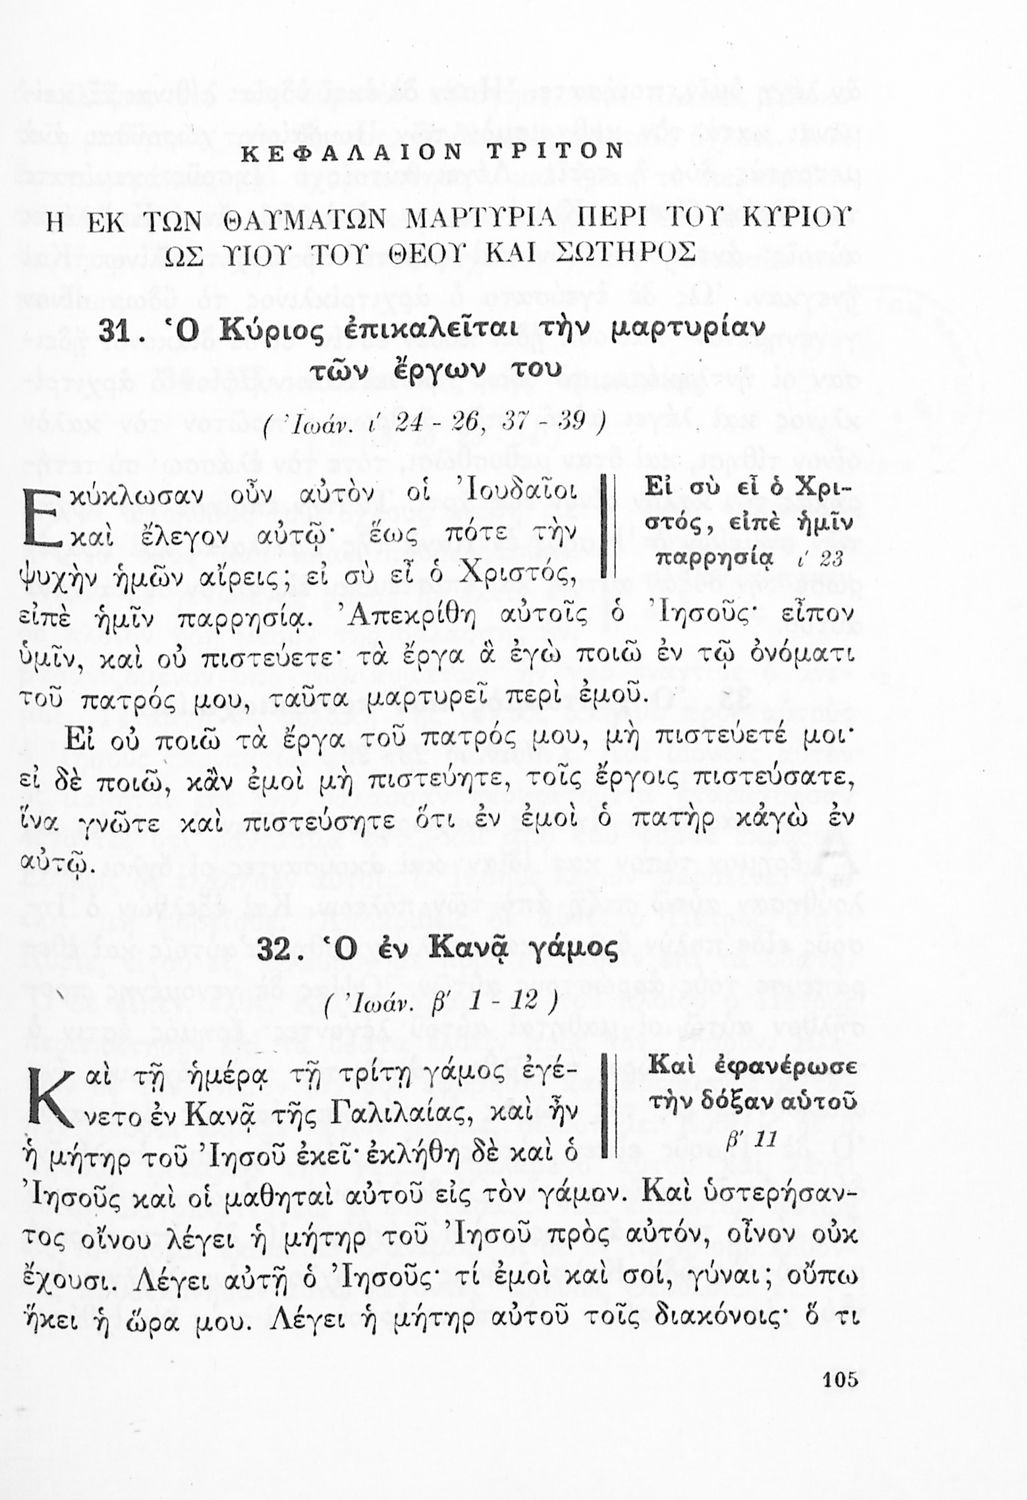 ΚΕΦΑΛΑΙΟΝ ΤΡΙΤΟΝ
Η ΕΚ ΤΩΝ ΘΑΥΜΑΤΩΝ ΜΑΡΤΥΡΙΑ ΠΕΡΙ ΤΟΥ ΚΥΡΙΟΥ
ΩΣ ΥΙΟΥ ΤΟΥ ΘΕΟΥ ΚΑΙ ΣΩΤΗΡΟΣ
31. Ὁ Κύριος ἐπικαλεῖται τὴν μαρτυρίαν
τῶν ἔργων του
( Ἰωάν. ι΄ 24 - 26, 37 - 39 )
Ἐκύκλωσαν οὖν αὐτὸν οἱ Ἰουδαῖοι
καὶ ἔλεγον αὐτῷ· ἕως πότε τὴν
ψυχὴν ἡμῶν αἴρεις; εἰ σὺ εἶ ὁ Χριστός,
Εἰ σὺ εἶ ὁ Χρι-
στός, εἰπὲ ἡμῖν
παρρησίᾳ ι΄ 23
εἰπὲ ἡμῖν παρρησίᾳ. Ἀπεκρίθη αὐτοῖς ὁ Ἰησοῦς· εἶπον
ὑμῖν, καὶ οὐ πιστεύετε· τὰ ἔργα ἃ ἐγὼ ποιῶ ἐν τῷ ὀνόματι
τοῦ πατρός μου, ταῦτα μαρτυρεῖ περὶ ἐμοῦ.
Εἰ οὐ ποιῶ τὰ ἔργα τοῦ πατρός μου, μὴ πιστεύετέ μοι·
εἰ δὲ ποιῶ, κἂν ἐμοὶ μὴ πιστεύητε, τοῖς ἔργοις πιστεύσατε,
ἵνα γνῶτε καὶ πιστεύσητε ὅτι ἐν ἐμοὶ ὁ πατὴρ κἀγὼ ἐν
αὐτῷ.
32. Ὁ ἐν Κανᾷ γάμος
( Ἰωάν. β΄ 1 - 12 )
Καὶ τῇ ἡμέρᾳ τῇ τρίτῃ γάμος ἐγέ-
νετο ἐν Κανᾷ τῆς Γαλιλαίας, καὶ ἦν
ἡ μήτηρ τοῦ Ἰησοῦ ἐκεῖ· ἐκλήθη δὲ καὶ ὁ
Καὶ ἐφανέρωσε
τὴν δόξαν αὐτοῦ
β΄ 11
Ἰησοῦς καὶ οἱ μαθηταὶ αὐτοῦ εἰς τὸν γάμον. Καὶ ὑστερήσαν-
τος οἴνου λέγει ἡ μήτηρ τοῦ Ἰησοῦ πρὸς αὐτόν, οἶνον οὐκ
ἔχουσι. Λέγει αὐτῇ ὁ Ἰησοῦς· τί ἐμοὶ καὶ σοί, γύναι; οὔπω
ἥκει ἡ ὥρα μου. Λέγει ἡ μήτηρ αὐτοῦ τοῖς διακόνοις· ὅ τι
105